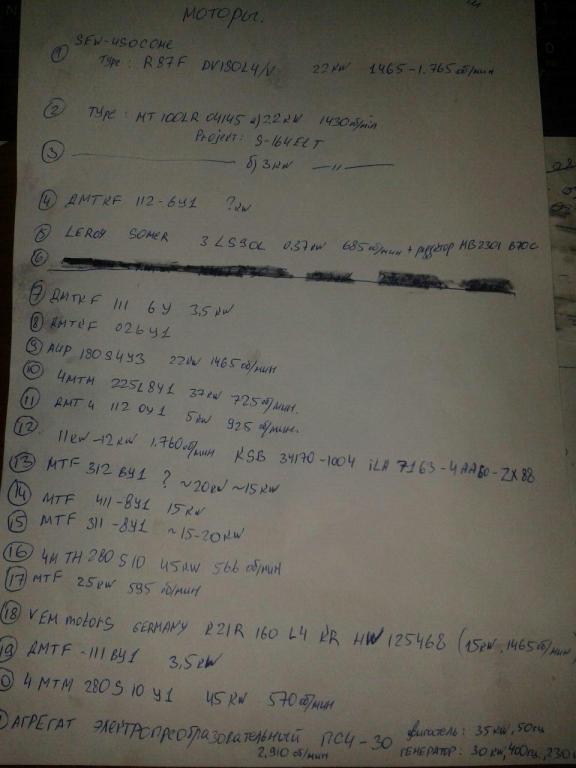 МОТОРЫ.
① SEW-USOCOME
Type: R87F DV180L4/V 22 kW 1465-1.765 об/мин
② Type: MT 100LR 04145 а) 2.2 kW 1430 об/min
Projekt: S-164ELT
③ —————— б) 3 kW —"—
④ ДМТКF 112-6У1 ? kW
⑤ LEROY SOMER 3 LS90L 0.37 kW 685 об/мин + редуктор МВ2301 B70C
⑥
⑦ ДМТКF 111 6У 3,5 kW
⑧ ДМТКF 026У1
⑨ АИР 180S4У3 22 kW 1465 об/мин
⑩ 4МТМ 225L8У1 37 kW 725 об/мин.
⑪ ДМТ4 112 0У1 5 kW 925 об/мин.
⑫ 11 kW-12 kW 1.760 об/мин KSB 34170-1004 iLA 7163-4AA60-ZX88
⑬ MTF 312 8У1 ? ~20 kW ~15 kW
⑭ MTF 411-8У1 15 kW
⑮ MTF 311-8У1 ~15-20 kW
⑯ 4МТН 280 S10 45 kW 566 об/мин
⑰ MTF 25 kW 595 об/мин
⑱ VEM motors GERMANY K21R 160 L4 KR HW 125468 (15 kW, 1465 об/мин)
19 ДМТF-111 8У1 3,5 kW
0 4 МТМ 280 S 10 У1 45 kW 570 об/мин
АГРЕГАТ ЭЛЕКТРОПРЕОБРАЗОВАТЕЛЬНЫЙ ПСЧ-30 двигатель: 35 kW, 50 гц
2.910 об/мин ГЕНЕРАТОР: 30 kW, 400 гц, 230